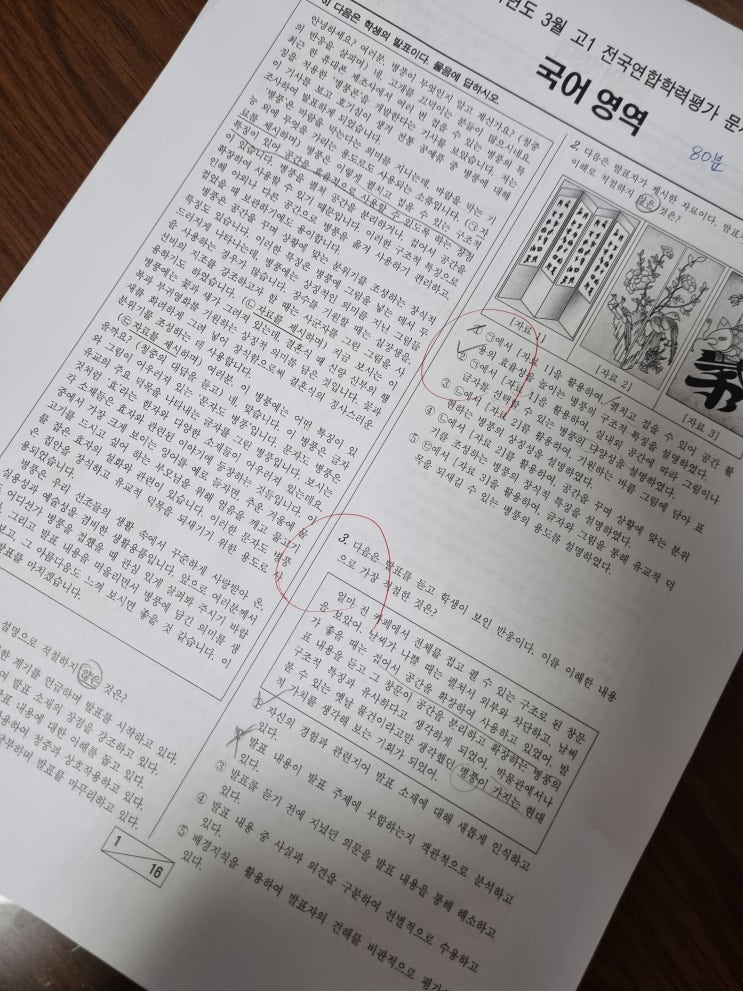 년도 3월 고1 전국연합학력평가 문
국어 영역
80분
3] 다음은 학생의 발표이다. 물음에 답하시오.
안녕하세요? 여러분, 병풍이 무엇인지 알고 계신가요? (청중
의 반응을 살피며) 네, 고개를 끄덕이는 분들이 많으시네요.
최근 한 휴대폰 제조사에서 여러 번 접을 수 있는 병풍의 특
징을 적용한 '병풍폰'을 개발한다는 기사를 보았습니다. 저는
이 기사를 보고 호기심이 생겨 전통 공예품 중 병풍에 대해
조사하여 발표하게 되었습니다.
'병풍'은 바람을 막는다는 의미를 지니는데, 바람을 막는 기
능 외에 무엇을 가리는 용도로도 사용되는 소품입니다. (㉠자
료를 제시하며) 병풍은 이렇게 펼치고 접을 수 있는 구조적
특징이 있어 공간을 효율적으로 사용할 수 있도록 하는 장점
이 있습니다. 병풍을 펼쳐 공간을 분리하거나, 접어서 공간을
확장하여 사용할 수 있기 때문입니다. 이러한 구조적 특징으로
인해 야외나 다른 공간으로 병풍을 옮겨 사용하기 편리하고
접었을 때 보관하기에도 용이합니다.
병풍은 공간을 꾸며 상황에 맞는 분위기를 조성하는 장식적
특징도 있습니다. 이러한 특징은 병풍에 그림을 넣는 데서 두
드러지게 나타나는데, 병풍에는 상징적인 의미를 지닌 그림을
사용하는 경우가 많습니다. 장수를 기원할 때는 십장생을,
선비의 지조를 강조하고자 할 때는 사군자를 그린 그림을 사
용하기도 하였습니다. (㉡자료를 제시하며) 지금 보시는 이
병풍에는 꽃과 새가 그려져 있는데, 결혼식 때 신랑 신부의 행
복과 부귀영화를 기원하는 상징적 의미를 담은 것입니다. 꽃과
새를 화려하게 그려 넣어 장식함으로써 결혼식의 경사스러운
분위기를 조성하는 데 사용합니다.
(㉢자료를 제시하며) 여러분, 이 병풍에는 어떤 특징이 있
을까요? (청중의 대답을 듣고) 네, 맞습니다. 이 병풍은 글자
와 그림이 어우러져 있는 '문자도 병풍'입니다. 문자도 병풍은
유교의 주요 덕목을 나타내는 글자를 그린 병풍입니다. 보시는
것처럼 '효'라는 한자와 다양한 소재들이 어우러져 있는데요.
중에서 가장 크게 보이는 잉어를 예로 들자면, 추운 겨울에 물
고기를 드시고 싶어 하는 부모님을 위해 얼음을 깨고 물고기
를 잡은 효자의 설화와 관련이 있습니다. 이러한 문자도 병풍
은 집안을 장식하고 유교적 덕목을 되새기기 위한 용도로 사
용되었습니다.
병풍은 우리 선조들의 생활 속에서 꾸준하게 사랑받아 온,
실용성과 예술성을 겸비한 생활용품입니다. 앞으로 여러분께서
어디선가 병풍을 접했을 때 관심 있게 살펴봐 주시기 바랍
그리고 발표 내용을 떠올리면서 병풍에 담긴 의미를 생
보고, 그 아름다움도 느껴 보시면 좋을 것 같습니다. 이
발표를 마치겠습니다.
설명으로 적절하지 않은 것은?
한 계기를 언급하며 발표를 시작하고 있다.
여 발표 소재의 장점을 강조하고 있다.
발표 내용에 대한 이해를 돕고 있다.
용하여 청중과 상호작용하고 있다.
당부하며 발표를 마무리하고 있다.
1
16
2. 다음은 발표자가 제시한 자료이다. 발표
이해로 적절하지 않은 것은?
[자료 1]
[자료 2]
[자료 3]
① ㉠에서 [자료 1]을 활용하여, 펼치고 접을 수 있어 공간 활
용의 효율성을 높이는 병풍의 구조적 특징을 설명하였다.
② ㉠에서 [자료 1]을 활용하여, 실내외 공간에 따라 그림이나
글자를 선택할 수 있는 병풍의 다양성을 설명하였다.
③ ㉡에서 [자료 2]를 활용하여, 기원하는 바를 그림에 담아 표
현하는 병풍의 상징성을 설명하였다.
④ ㉡에서 [자료 2]를 활용하여, 공간을 꾸며 상황에 맞는 분위
기를 조성하는 병풍의 장식적 특징을 설명하였다.
⑤ ㉢에서 [자료 3]을 활용하여, 글자와 그림을 통해 유교적 덕
목을 되새길 수 있는 병풍의 용도를 설명하였다.
3. 다음은 발표를 듣고 학생이 보인 반응이다. 이를 이해한 내용
으로 가장 적절한 것은?
얼마 전 카페에서 전체를 접고 펼 수 있는 구조로 된 창문
을 보았어. 날씨가 나쁠 때는 펼쳐서 외부와 차단하고, 날씨
가 좋을 때는 접어서 공간을 확장하여 사용하고 있었어. 발
표 내용을 듣고 그 창문이 공간을 분리하고 확장하는 병풍의
구조적 특징과 유사하다고 생각하게 되었어. 박물관에서나
볼 수 있는 옛날 물건이라고만 생각했던 병풍이 가지는 현대
적 가치를 생각해 보는 기회가 되었어.
① 자신의 경험과 관련지어 발표 소재에 대해 새롭게 인식하고
있다.
② 발표 내용이 발표 주제에 부합하는지 객관적으로 분석하고
있다.
③ 발표를 듣기 전에 지녔던 의문을 발표 내용을 통해 해소하고
있다.
④ 발표 내용 중 사실과 의견을 구분하여 선별적으로 수용하고
있다.
⑤ 배경지식을 활용하여 발표자의 견해를 비판적으로 평가
있다.